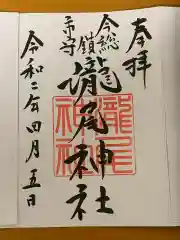 奉拝
今市総鎮守
瀧尾神社
瀧尾
神社
令和二年四月五日